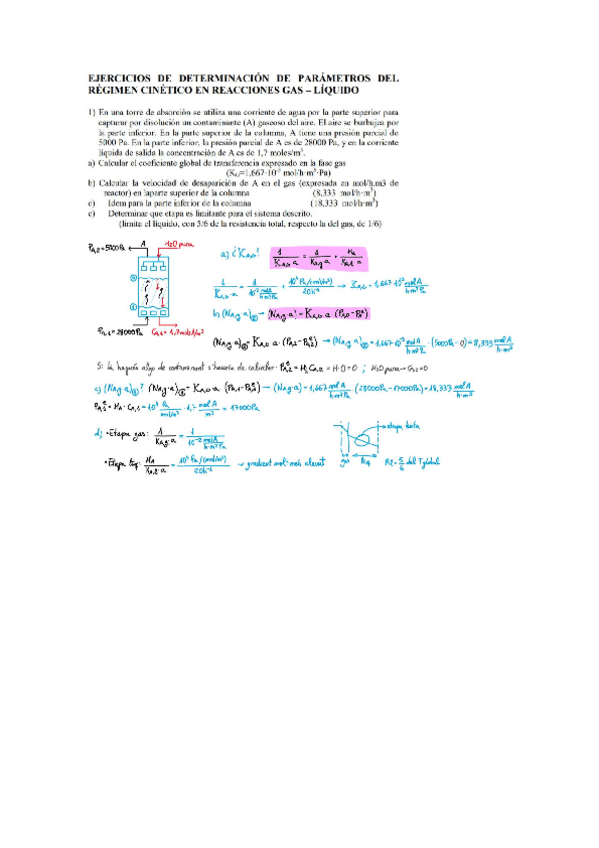 EJERCICIOS DE DETERMINACIÓN DE PARÁMETROS DEL
RÉGIMEN CINÉTICO EN REACCIONES GAS – LÍQUIDO
1) En una torre de absorción se utiliza una corriente de agua por la parte superior para
capturar por disolución un contaminante (A) gaseoso del aire. El aire se burbujea por
la parte inferior. En la parte superior de la columna, A tiene una presión parcial de
5000 Pa. En la parte inferior, la presión parcial de A es de 28000 Pa, y en la corriente
líquida de salida la concentración de A es de 1,7 moles/m³.
a) Calcular el coeficiente global de transferencia expresado en la fase gas
(K_AG=1,667·10⁻³ mol/h·m³·Pa)
b) Calcular la velocidad de desaparición de A en el gas (expresada en mol/h.m3 de
reactor) en laparte superior de la columna (8,333 mol/h·m³)
c) Idem para la parte inferior de la columna (18,333 mol/h·m³)
c) Determinar que etapa es limitante para el sistema descrito.
(limita el líquido, con 5/6 de la resistencia total, respecto la del gas, de 1/6)
P_A,2 = 5000Pa A H2O pura
a) ¿K_A,G? 1/(K_A,G·a) = 1/(k_A,g·a) + H_A/(k_A,l·a)
1/(K_A,G·a) = 1/(10⁻² mol A/h·m³Pa) + 10⁴ Pa/(mol/m³)/20h⁻¹ → K_A,G = 1,667·10⁻³ mol A/h·m³Pa
b) (N_A,g·a)② → (N_A,g·a) = K_A,G·a·(P_A,G-P_A*)
P_A,1 = 28000Pa C_A,1 = 1,7 mol A/m³
(N_A,g·a)② = K_A,G·a·(P_A,2-P_A,2*) → (N_A,g·a)② = 1,667·10⁻³ mol A/h·m³Pa · (5000Pa-0) = 8,333 mol A/h·m³
Si la hubiera algo de contaminant s'hauria de calcular: P_A,2* = H_A·C_A,2 = H·0 = 0 ; H2O pura → C_A,2 = 0
c) (N_A,g·a)①? (N_A,g·a)① = K_A,G·a·(P_A,1-P_A,1*) → (N_A,g·a) = 1,667 mol A/h·m³Pa · (28000Pa-17000Pa) = 18,333 mol A/h·m³
P_A,1* = H_A·C_A,1 = 10⁴ Pa/mol/m³ · 1,7 mol A/m³ = 17000Pa
d) • Etapa gas: 1/(k_A,g·a) = 1/(10⁻² mol A/h·m³Pa)
• Etapa líq: H_A/(k_A,l·a) = 10⁴ Pa/(mol/m³)/20h⁻¹ → gradient molt més elevat
etapa lenta
gas líq Rl = 5/6 del total